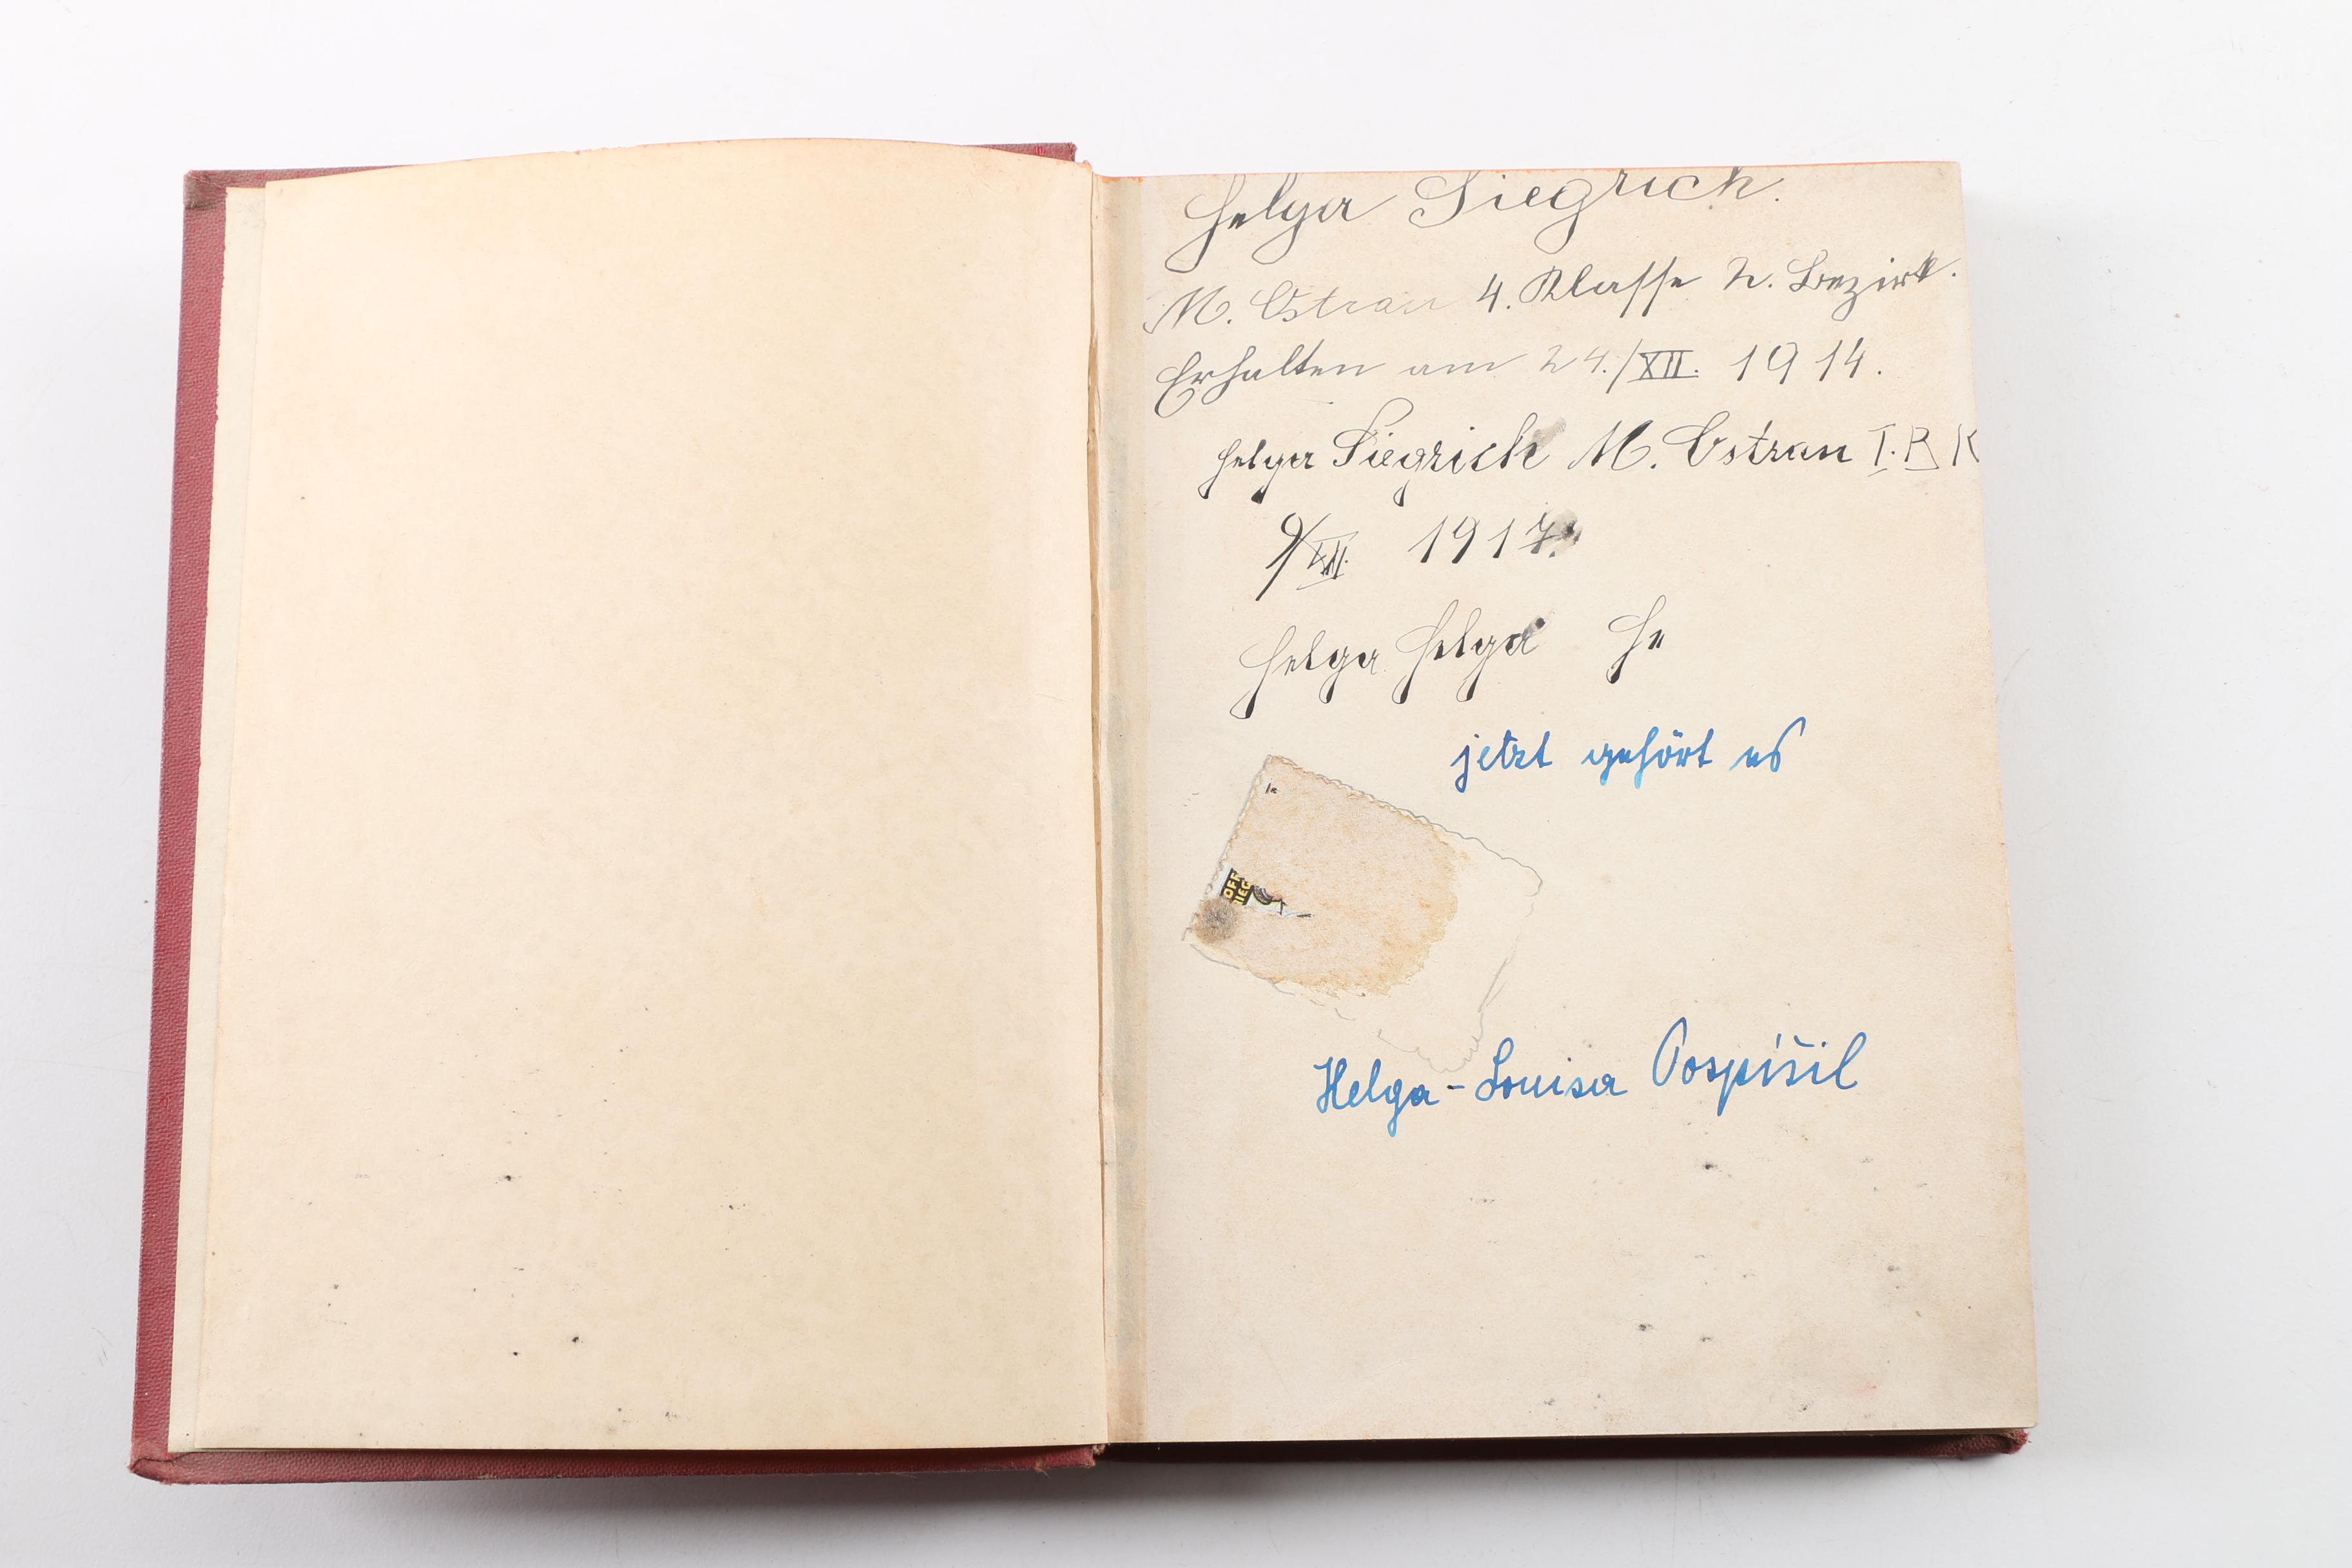 Helga Siegrich.
M. Ostrau 4. Klasse 2. Bezirk.
Erhalten am 24./XII. 1914.
Helga Siegrich M. Ostrau I. B K
9/XII. 1917.
Helga Helga He
jetzt gehört es
OFF
IEG
Helga-Louisa Pospíšil